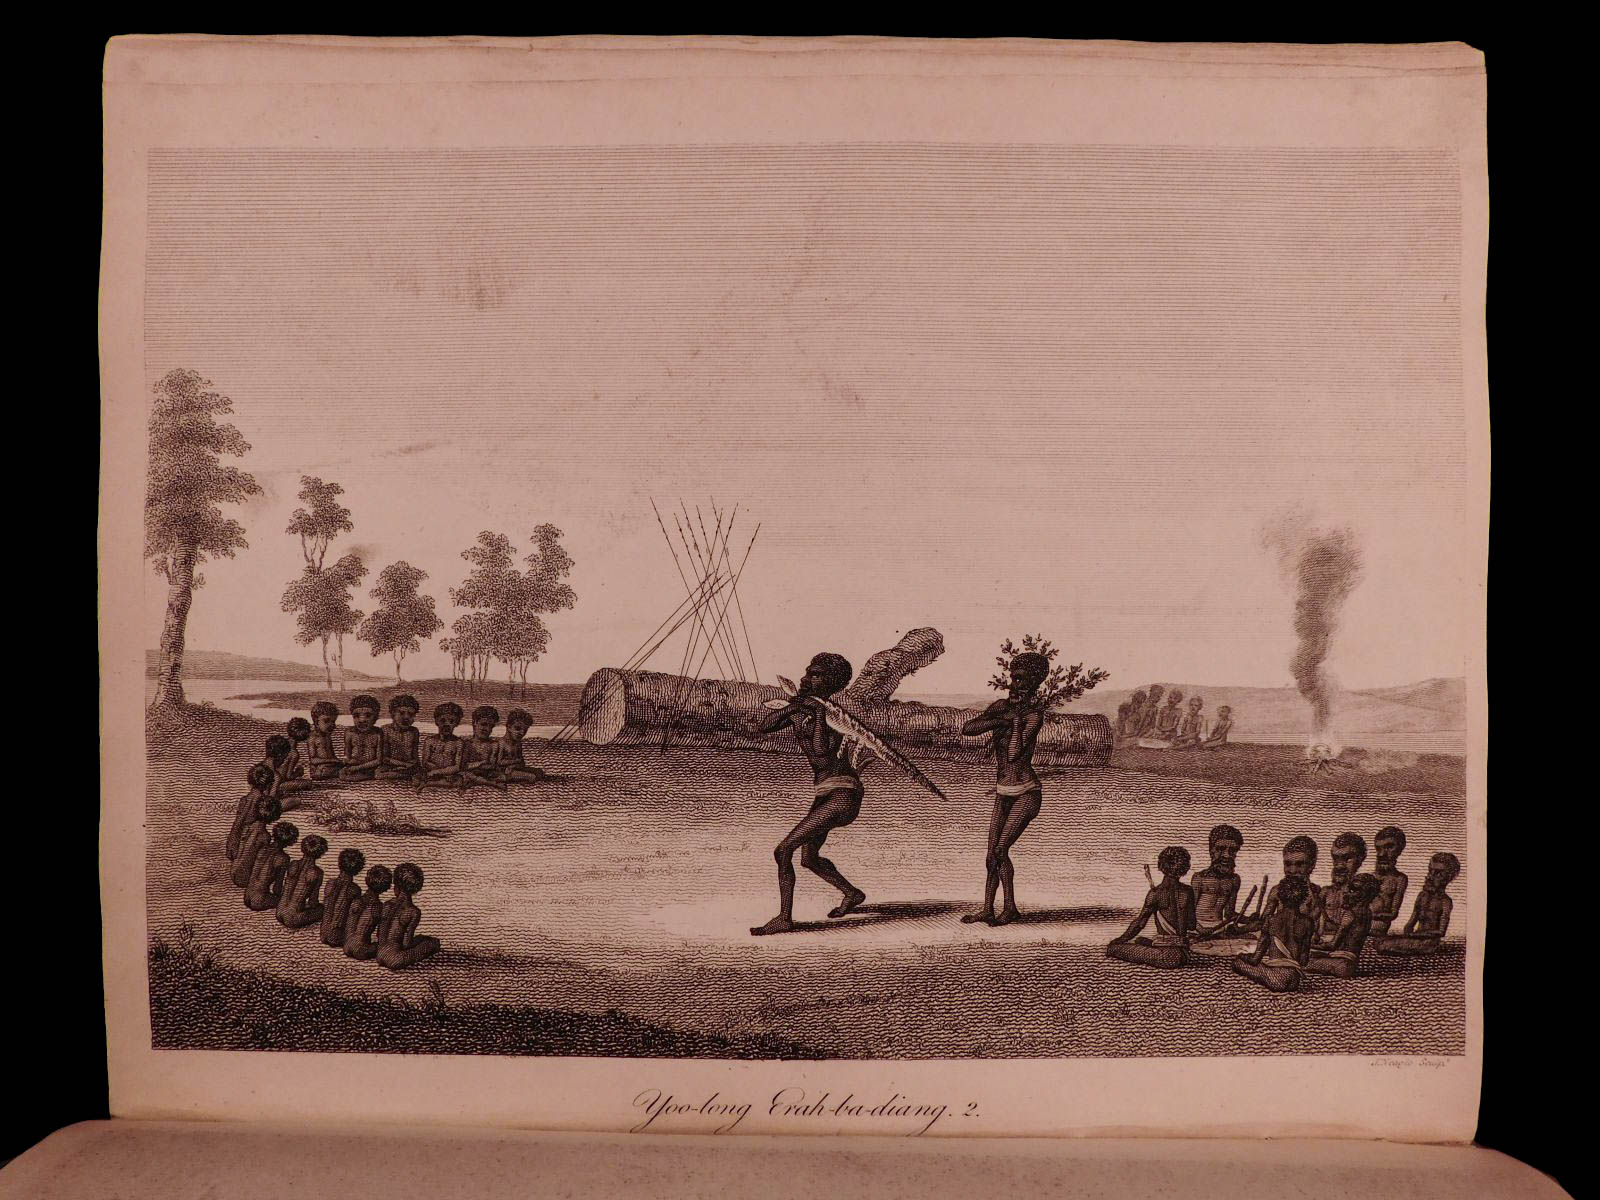 J. Neagle Sculpt.
Yoo-long Erah-ba-diang. 2.